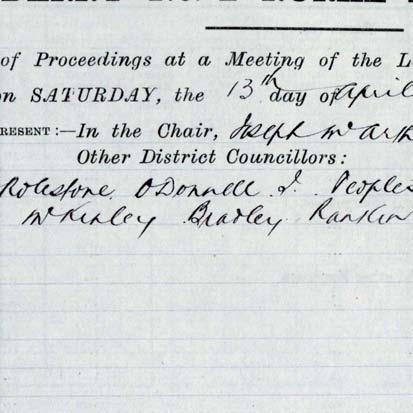 of Proceedings at a Meeting of the L
on SATURDAY, the 13th day of April
RESENT :—In the Chair, Joseph McArth
Other District Councillors:
Rolestone, ODonnell J. Peoples
McKinley Bradley Rankin